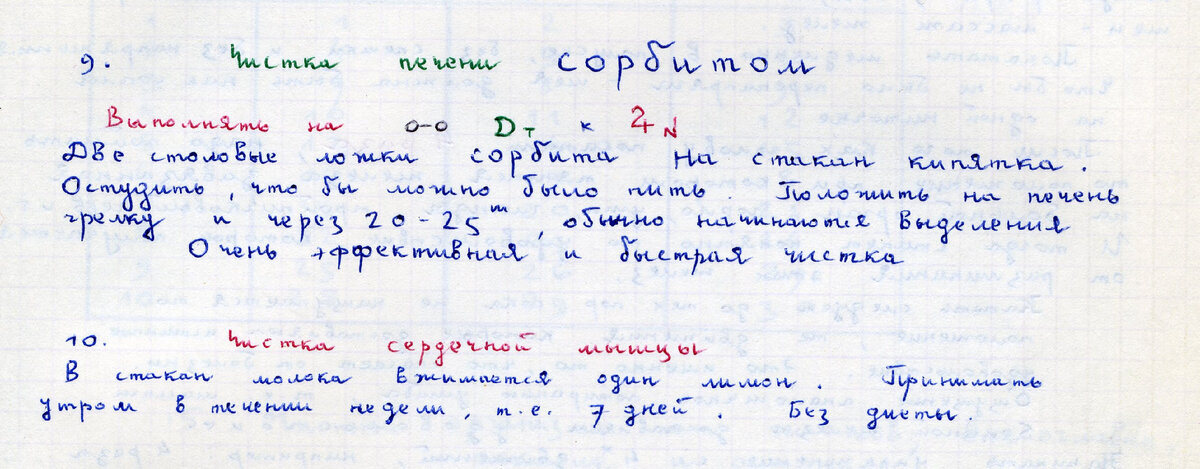 9. Чистка печени сорбитом
Выполнять на о-о Dт к 24
Две столовые ложки сорбита на стакан кипятка.
Остудить, что бы можно было пить. Положить на печень
грелку и через 20-25 m, обычно начинаются выделения
Очень эффективная и быстрая чистка
10. Чистка сердечной мышцы
В стакан молока вжимается один лимон. Принимать
утром в течении недели, т.е. 7 дней. Без диеты.